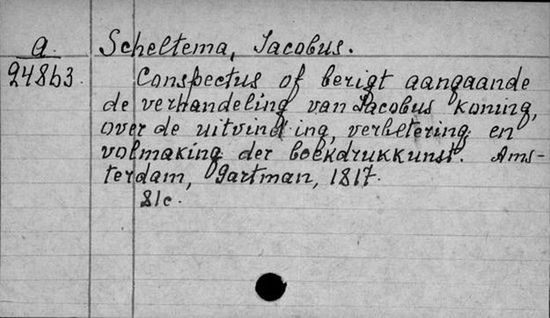 a. Scheltema, Jacobus.
94863. Conspectus of berigt aangaande
de verhandeling van Jacobus Koning,
over de uitvinding, verbetering en
volmaking der boekdrukkunst. Ams-
terdam, Gartman, 1817.
81c.